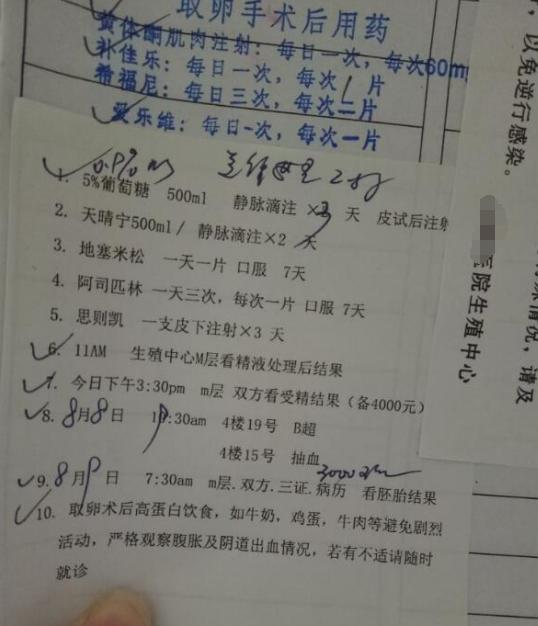 取卵手术后用药
黄体酮肌肉注射：每日一次，每次60m
补佳乐：每日一次，每次1片
希福尼：每日三次，每次二片
爱乐维：每日一次，每次一片
，以免逆行感染。
医院生殖中心
情况，请及
0.9% NS
1. 5%葡萄糖 500ml 静脉滴注 ×3 天 皮试后注射
2. 天晴宁500ml/ 静脉滴注×2 天
3. 地塞米松 一天一片 口服 7天
4. 阿司匹林 一天三次，每次一片 口服 7天
5. 思则凯 一支皮下注射×3 天
6. 11AM 生殖中心M层看精液处理后结果
7. 今日下午3:30pm m层 双方看受精结果（备4000元）
8. 8月8日 :30am 4楼19号 B超
4楼15号 抽血
9. 8月9日 7:30am m层.双方.三证.病历 看胚胎结果
10. 取卵术后高蛋白饮食，如牛奶，鸡蛋，牛肉等避免剧烈
活动，严格观察腹胀及阴道出血情况，若有不适请随时
就诊